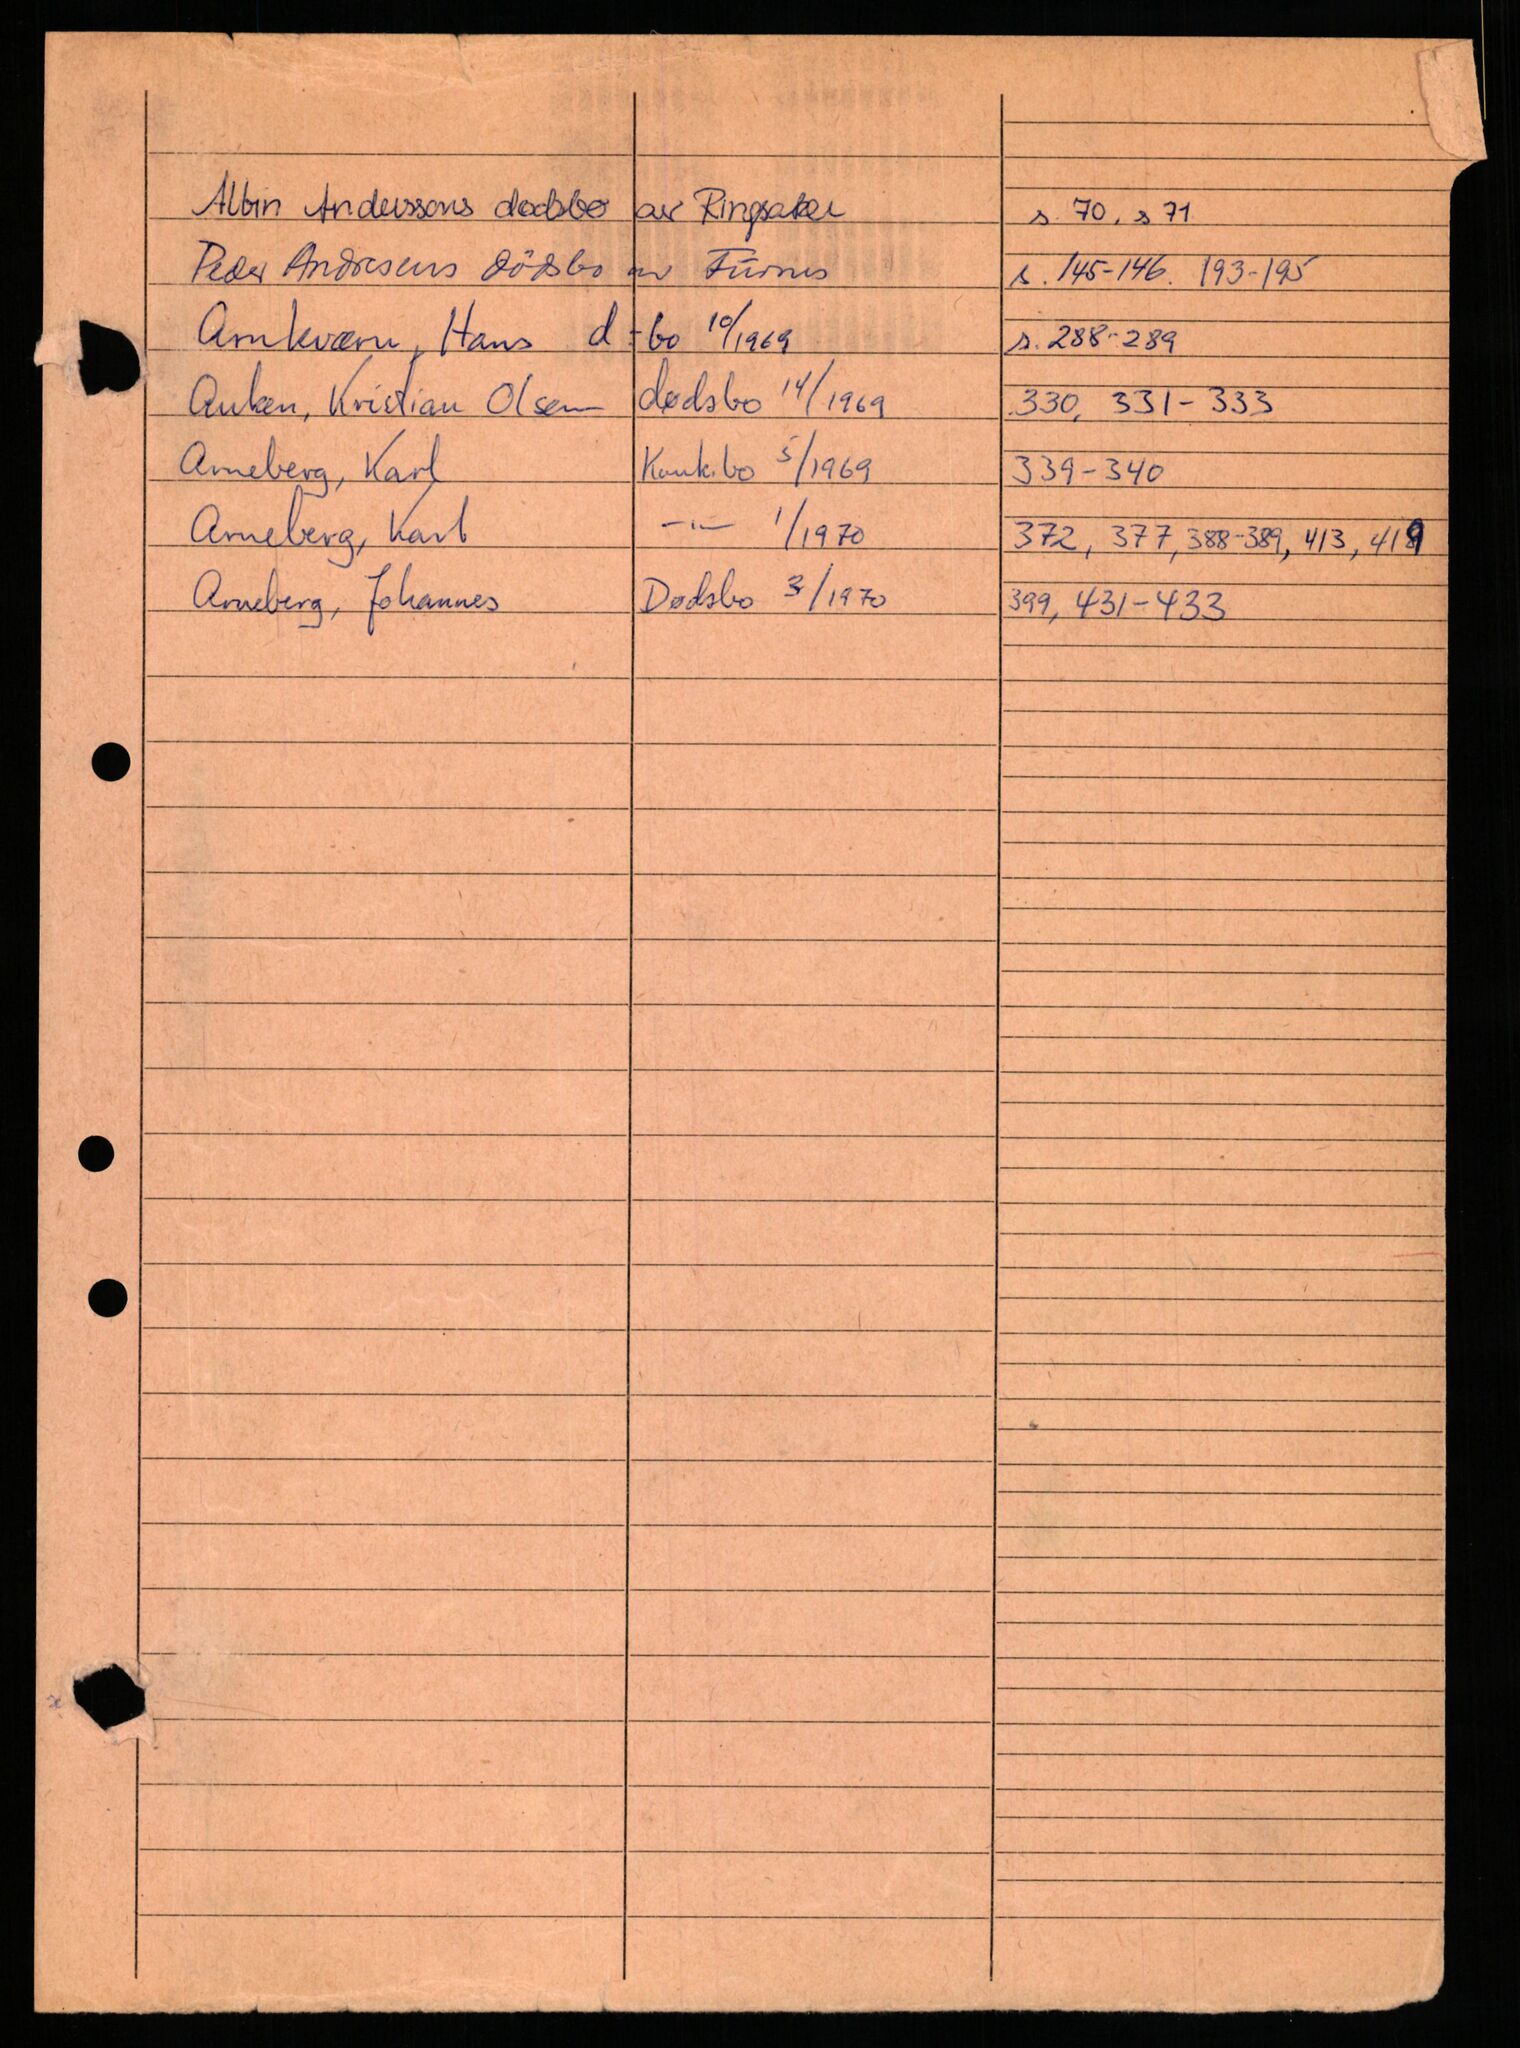 Albin Anderssons dødsbo av Ringsaker s. 70, s 71
Peder Andresens dödsbo av Furnes s. 145-146. 193-195
Arnkværn, Hans d-bo 10/1969 s. 288-289
Kristian Olsen dødsbo 14/1969 330, 331-333
Arneberg, Karl Konk.bo 5/1969 339-340
Arneberg, Karl -"- 1/1970 372, 377, 388-389, 413, 419
Arneberg, Johannes Dødsbo 3/1970 399, 431-433